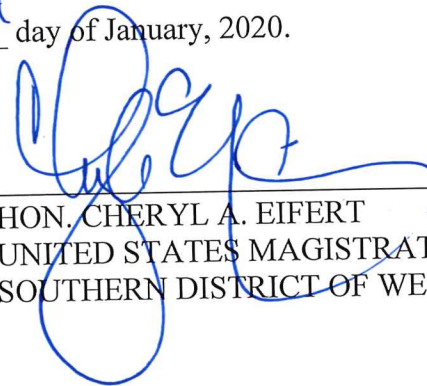 day of January, 2020.
HON. CHERYL A. EIFERT
UNITED STATES MAGISTRAT
SOUTHERN DISTRICT OF WE